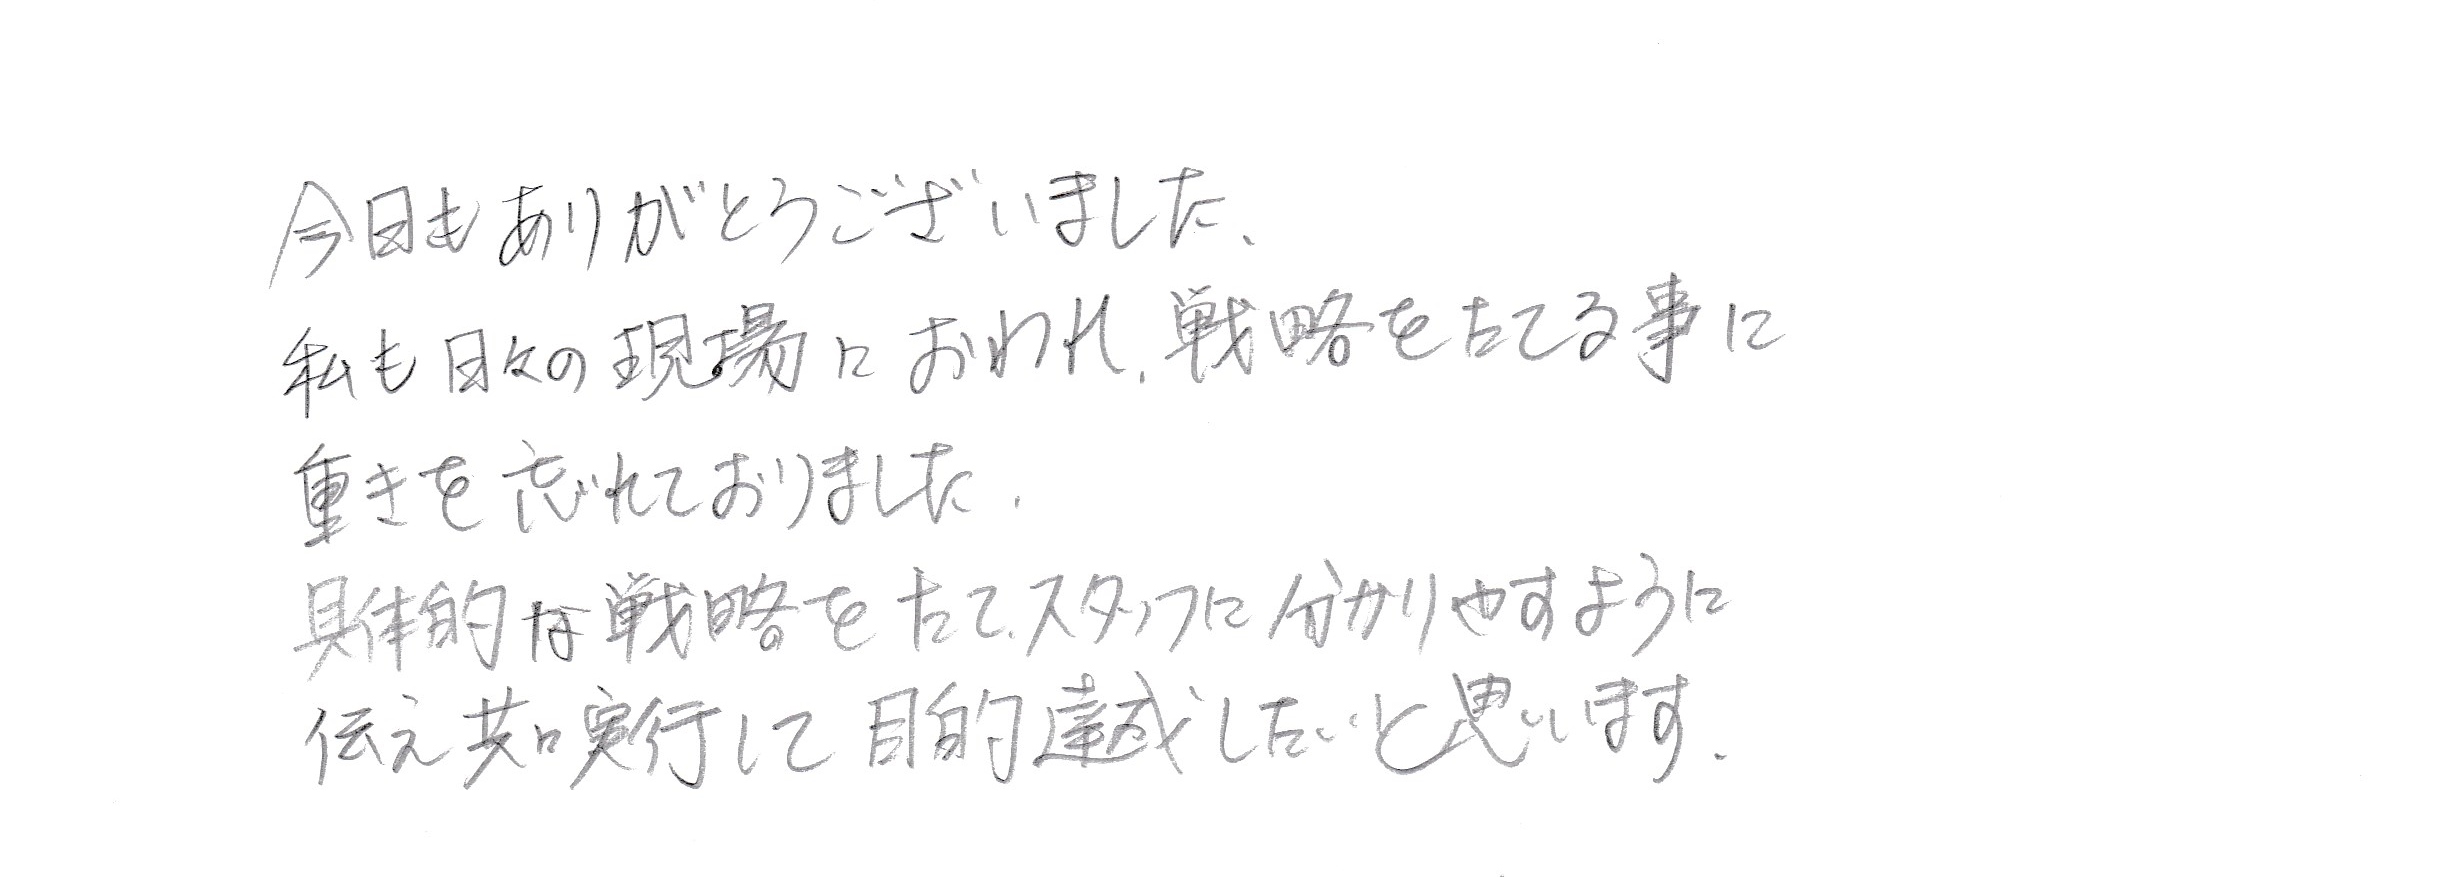 今日もありがとうございました、
私も日々の現場におわれ、戦略をたてる事に
重きを忘れておりました.
具体的な戦略をたて、スタッフに分かりやすように
伝え共に実行して目的達成したいと思います.